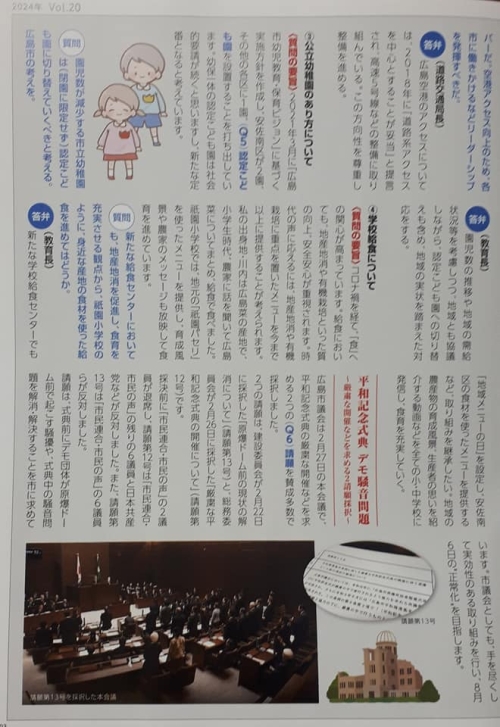 2024年 Vol.20
バーだ。空港アクセス向上のため、各
市に働きかけるなどリーダーシップ
を発揮すべきだ。
答弁（道路交通局長）
広島空港のアクセスについて
は、2018年に「道路系アクセス
を中心とすることが妥当」と提言
され、高速5号線などの整備に取り
組んでいる。この方向性を尊重し
整備を進める。
③公立幼稚園のあり方について
〈質問の要旨〉2021年3月に「広島
市幼児教育・保育ビジョン」に基づく
実施方針を作成し、安佐南区が2園、
その他の各区に1園、Q5認定こど
も園を設置することを打ち出してい
ます。幼保一体の認定こども園は社会
的要請が続くと思いますし、新たな定
番となると考えています。
質問 園児数が減少する市立幼稚園
は（閉園に限定せず）認定こど
も園に切り替えていくべきと考える。
広島市の考えを。
答弁（教育長）
園児数の推移や地域の需給
状況等を考慮しつつ、地域とも協議
しながら、認定こども園への切り替
えも含め、地域の実状を踏まえた対
応をする。
④学校給食について
〈質問の要旨〉コロナ禍を経て、「食」へ
の関心が高まっています。給食におい
ても、地産地消や有機栽培といった質
の向上、安全安心が重視されます。時
代の声に応えるには、地産地消や有機
栽培に重点を置いたメニューを今まで
以上に提供することが考えられます。
私の出身地川内は広島菜の産地で、
小学生時代、農家に話を聞いて広島
菜についてまとめ、給食で食べました。
祇園小学校では、地元の「祇園パセリ」
を使ったメニューを提供し、育成風
景や農家のメッセージも放映して食
育を進めています。
質問 新給食センターにおいて
も、地産地消を促進し、食育を
充実させる観点から、祇園小学校の
ように、身近な産地の食材を使った給
食を進めてはどうか。
答弁（教育長）
新たな学校給食センターでも
「地域メニューの日」を設定し、安佐南
区の食材を使ったメニューを提供する
など、取り組みを継承したい。地域の
農産物の育成風景、生産者の思いを紹
介する動画などを全ての小・中学校に
発信し、食育を充実していく。
平和記念式典、デモ騒音問題
～厳粛な開催などを求める2請願採択～
広島市議会は2月27日の本会議で、
平和記念式典の厳粛な開催などを求
める2つのQ6請願を賛成多数で
採択しました。
2つの請願は、建設委員会が2月22日
に採択した「原爆ドーム前の現状の解
消について」（請願第13号）と、総務委
員会が2月26日に採択した「厳粛な平
和記念式典の開催について」（請願第
12号）です。
採決前に「市民連合・市民の声」の2議
員が退席し、請願第12号は「市民連合・
市民の声」の残りの6議員と日本共産
党などが反対しました。また、請願第
13号は「市民連合・市民の声」の6議員
らが反対しました。
請願は、式典前にデモ団体が原爆ドー
ム前で起こす騒擾や、式典中の騒音問
題を解消、解決することを市に求めて
います。市議会としても、手を尽くし
て実効性のある取り組みを行い、8月
6日の“正常化”を目指します。
請願第13号
請願第13号を採択した本会議